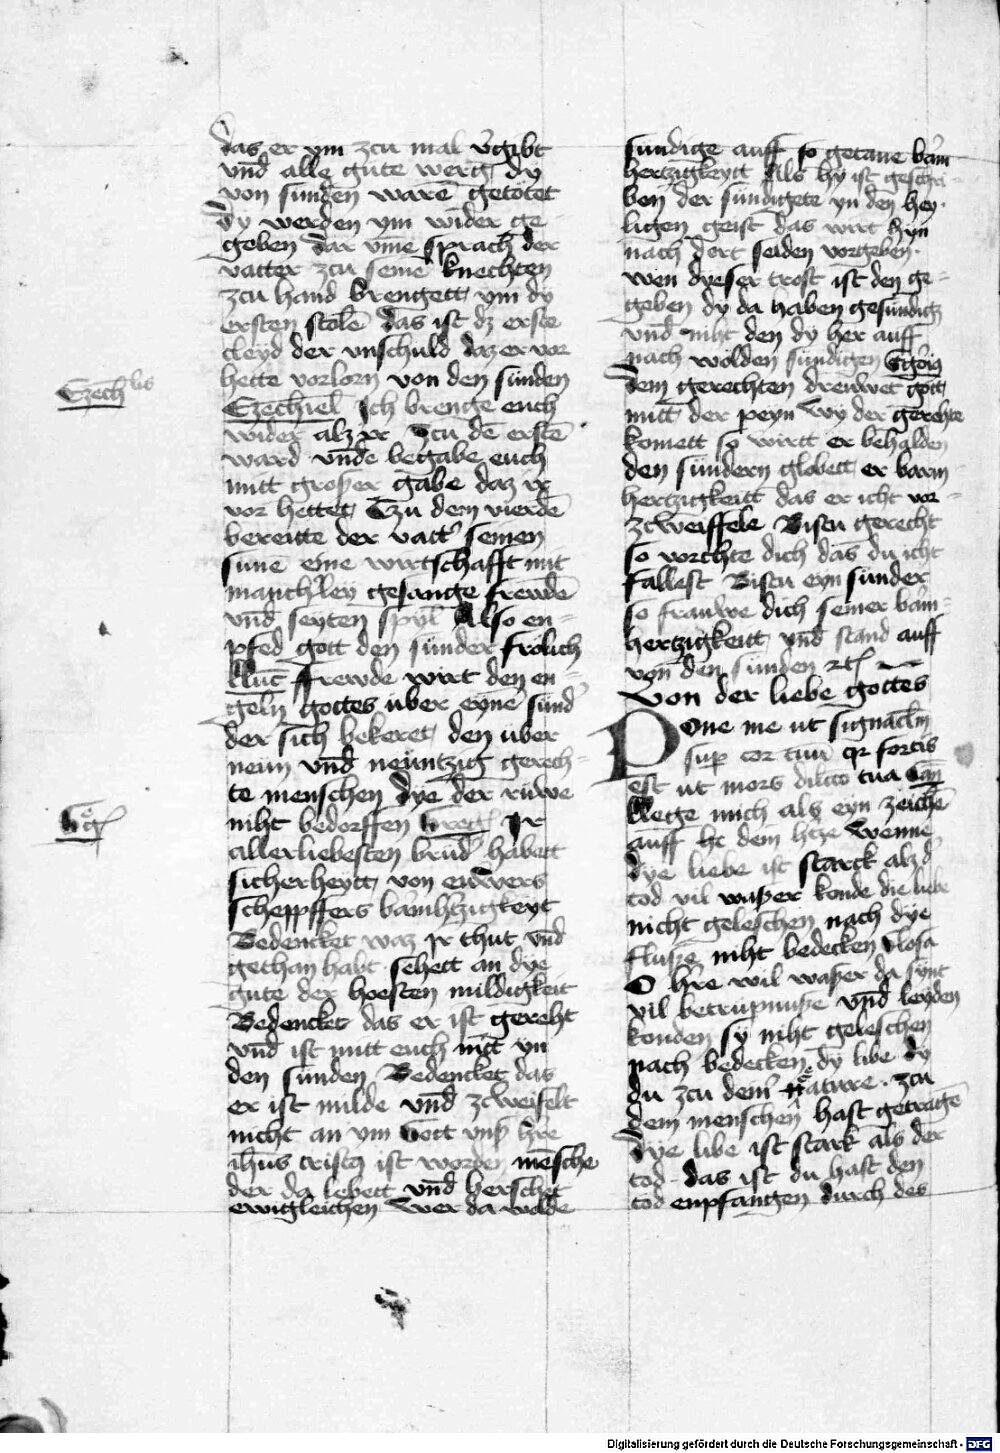 das er ym zcu mal v̄gibt
vnd alle gute werg dy
von sunden warē getotet
dy werden ym wider ge-
geben dar vm̄e sprach der
vatter zcu seinē knechten
zcu hand brengett ym dy
ersten stolē das ist dz erste
cleyd der vnschuld daz er vor
hette vorlorn von den sunden
Ezechiel Ich brenge euch
wider alz yr zcu dē erstē
ward vnde begabe euch
mitt groſer gabe daz yr
vor hettet Czu dem vierdē
bereitte der vatt' seinen
sunē eine wirtschafft mit
manch'ley gesange frewdē
vnd seyten spyl Also en-
pfed gott den sunder frolich
Luc̄ Frewde wirt den en-
geln gottes uber eynē sund'
der sich bekeret den uber
neun vnd neuntzig gerech-
te menschen dye der ruwe
niht bedorffen Greg' Ir
allerliebesten brud' habett
sicherheytt von euwers
scheppffers bāmh'tzigkeyt
Bedencket waz Ir thut vnd
gethan habt sehett an dye
gute der hoesten mildigkeit
Bedencket das er ist gereht
vnd ist mitt euch nitt yn
den sunden Bedencket das
er ist milde vnd zcweifelt
nicht an ym Gott vnſ' h're
ih̄us cristꝯ ist worden mēsche
der da lebett vnd herschet
ewigleichen Wer da wolde
Ezech'lis
G'g'
sundige auff so getane bām
hertzigkeytt Als hy ist geschri-
ben der sundigete yn den hey-
ligen geist das wirt hyn
nach dort selden vorgeben.
wen dyeser trost ist den ge-
geben dy da haben gesundigt
vnd niht den dy her auff
nach wolden sundigen
dem gerechten dreuwet gott
mitt der peyn wy der gerehte
komett so wirtt er behalden
den sundern globett er barm-
hertzigkeitt das er icht vor-
zcweiffele Bistu gerecht
so vorchte dich das du icht
fallest Bistu eyn sunder
so frauwe dich seiner bām-
hertzigkeitt vnd stand auff
von den sunden ꝛc
Von der liebe gottes
Pone me ut signacl'm
sup cor tuū qr fortis
est ut mors dilcco tua Can̄
Lege mich als eyn zeichē
auff dem h'tze wenne
dye liebe ist starck alz d'
tod vil waſer konde die liebe
nicht geleschen nach dye
fluſe niht bedecken Glosa
O h're wil waſer da synt
vil betrupnuſe vnd leyden
konden sy niht geleschen
nach bedecken dy libe dy
du zcu dem nature. zcu
dem menschen hast getragē
Dye libe ist stark als der
tod. das ist du hast den
tod enpfangen durch des
Digitalisierung gefördert durch die Deutsche Forschungsgemeinschaft - DFG